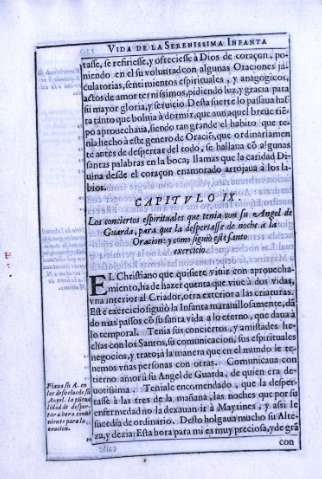 VIDA DE LA SERENISSIMA INFANTA
tasse, se refiriesse, y ofreciesse à Dios de coraçon, po-
niendo en el su volũtad con algunas Oraciones ja-
culatorias, sentimientos espirituales, y anagogicos,
actos de amor ternissimos, pidiendo luz, y gracia para
su mayor gloria, y seruicio. Desta suerte lo passaua has-
ta tãnto que boluia à dormir, que aun aquel breue tiẽ-
po aprouechaua, siendo tan grande el habito que te-
nia hecho à este genero de Oraciõ, que ordinariamen-
te antes de despertar del todo, se hallaua cõ algunas
santas palabras en la boca; llamas que la caridad Di-
uina desde el coraçon enamorado arrojaua à los la-
bios.
CAPITVLO IX.
Los conciertos espirituales que tenia con su Angel de
Guarda, para que la despertasse de noche a la
Oracion: y como siguiò este santo
exercicio.
EL Christiano que quisiere viuir con aprouecha-
miento, ha de hazer quenta que viue à dos vidas,
vna interior al Criador, otra exterior a las criaturas.
Este exercicio siguiò la Infanta marauillosamente, dã-
do mas passos cõ su santa vida a lo eterno, que daua à
lo temporal. Tenia sus conciertos, y amistades he-
chas con los Santos, su comunicacion, sus espirituales
negocios, y trato, à la manera que en el mundo le te-
nemos vnas personas con otras. Comunicaua con
tierno amor à su Angel de Guarda, de quien era de-
uotissima. Teniale encomendado, que la desper-
tasse à las tres de la mañana, las noches que por su
enfermedad no la dexauan ir à Maytines, y assi le
sucedia de ordinario. Desto holgaua mucho su Alte-
za, y dezia: Esta hora para mi es muy preciosa, y de grã
con
Fiaua su A. en
los desvelos de su
Angel la
lidad de desper-
tar a hora conue-
niente para la
oracion.